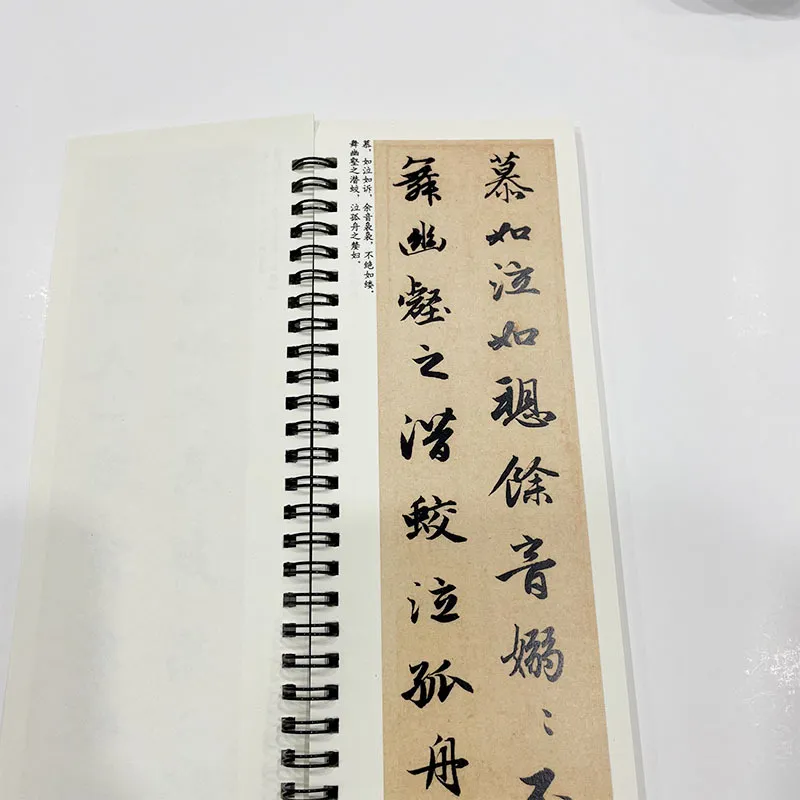 慕如泣如愬餘音嫋〻不
舞幽壑之潛蛟泣孤舟
慕,如泣如诉,余音袅袅,不绝如缕。
舞幽壑之潜蛟,泣孤舟之嫠妇。